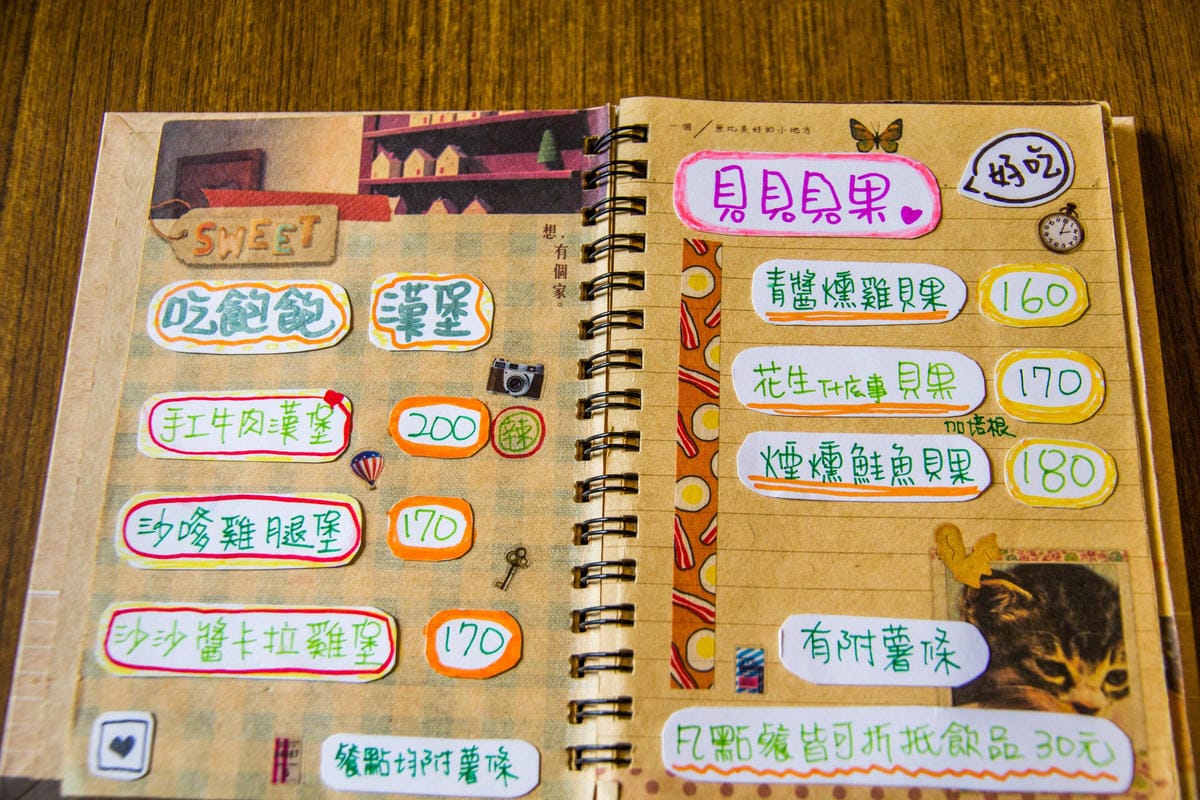 SWEET
想,有個家。
吃飽飽 漢堡
手工牛肉漢堡 200 辣
沙嗲雞腿堡 170
沙沙醬卡拉雞堡 170
餐點均附薯條
一個/無比美好的小地方
貝貝貝果
好吃
青醬燻雞貝果 160
花生什麼事貝果 170
加培根
煙燻鮭魚貝果 180
有附薯條
凡點餐皆可折抵飲品30元